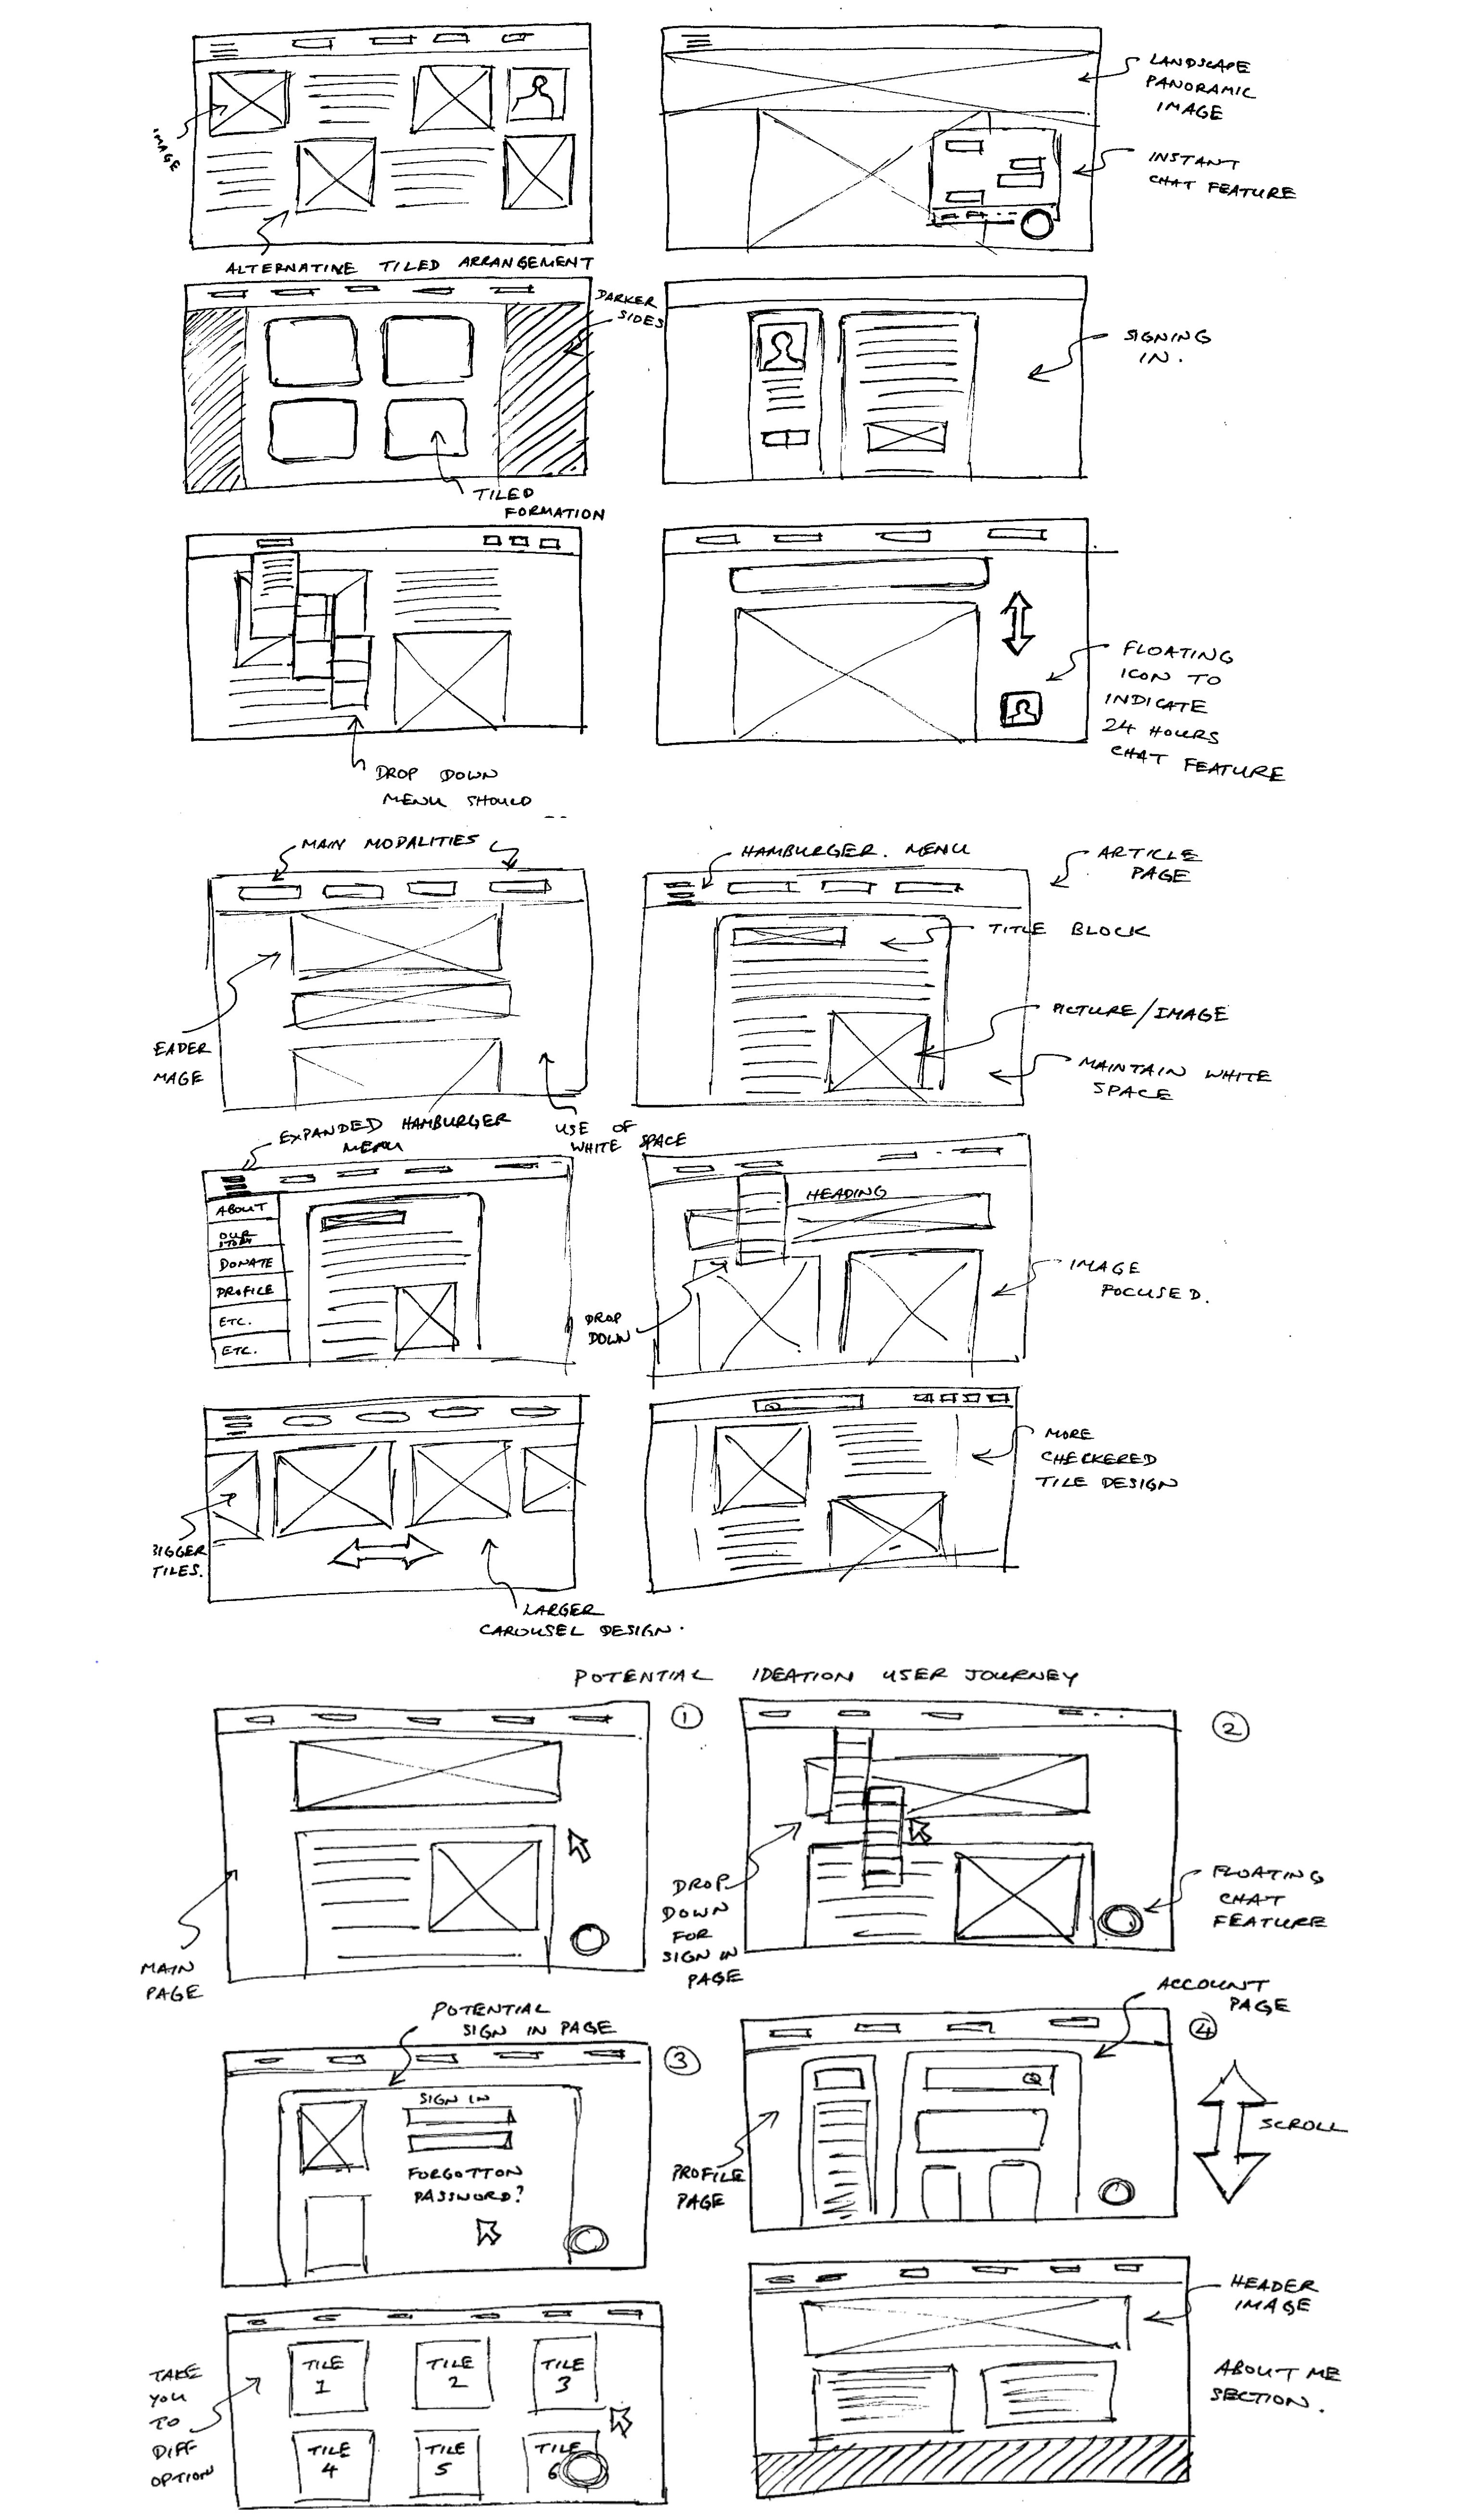 IMAGE
LANDSCAPE
PANORAMIC
IMAGE
INSTANT
CHAT FEATURE
ALTERNATINE TILED ARRANGEMENT
DARKER
SIDES
TILED
FORMATION
SIGNING
IN.
DROP DOWN
MENU SHOULD
FLOATING
ICON TO
INDICATE
24 HOURS
CHAT FEATURE
MAIN MODALITIES
EADER
MAGE
USE OF
WHITE SPACE
HAMBURGER. MENU
ARTICLE
PAGE
TITLE BLOCK
PICTURE/IMAGE
MAINTAIN WHITE
SPACE
EXPANDED HAMBURGER
MENU
ABOUT
OUR
STORY
DONATE
PROFILE
ETC.
ETC.
HEADING
DROP
DOWN
IMAGE
FOCUSED.
BIGGER
TILES.
LARGER
CAROUSEL DESIGN.
MORE
CHECKERED
TILE DESIGN
POTENTIAL IDEATION USER JOURNEY
1
MAIN
PAGE
2
DROP
DOWN
FOR
SIGN IN
PAGE
FLOATING
CHAT
FEATURE
POTENTIAL
SIGN IN PAGE
3
SIGN IN
FORGOTTON
PASSWORD?
ACCOUNT
PAGE
4
PROFILE
PAGE
SCROLL
TAKE
YOU
TO
DIFF
OPTION
TILE
1
TILE
2
TILE
3
TILE
4
TILE
5
TILE
6
HEADER
IMAGE
ABOUT ME
SECTION.